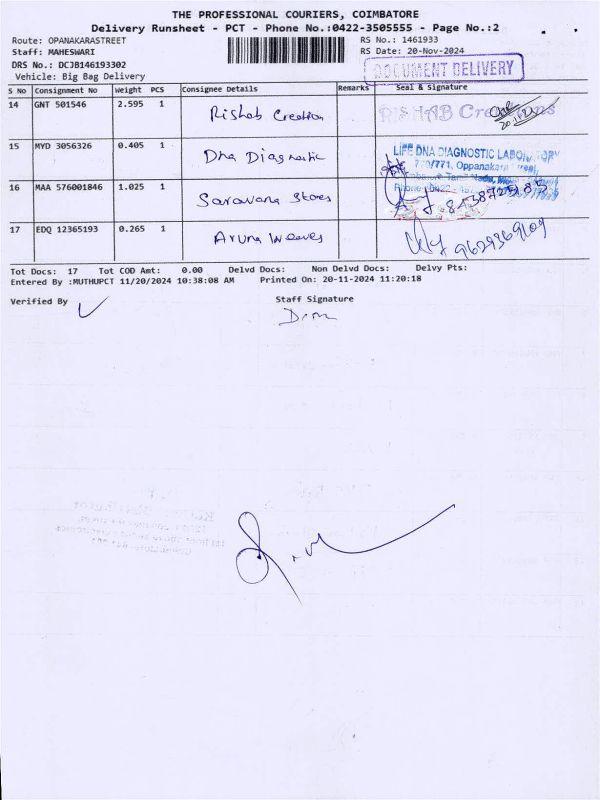 THE PROFESSIONAL COURIERS, COIMBATORE
Delivery Runsheet - PCT - Phone No.:0422-3505555 - Page No.:2
Route: OPANAKARASTREET RS No.: 1461933
Staff: MAHESWARI RS Date: 20-Nov-2024
DRS No.: DCJB146193302
DOCUMENT DELIVERY
Vehicle: Big Bag Delivery
S No Consignment No Weight PCS Consignee Details Remarks Seal & Signature
14 GNT 501546 2.595 1 Rishab Creation RISHAB Creations
15 MYD 3056326 0.405 1 Dna Diagnostic LIFE DNA DIAGNOSTIC LABORATORY
770/771, Oppanakara Street,
16 MAA 576001846 1.025 1 Saravana Stores
17 EDQ 12365193 0.265 1 Aruna Weaves 9629369609
Tot Docs: 17 Tot COD Amt: 0.00 Delvd Docs: Non Delvd Docs: Delvy Pts:
Entered By :MUTHUPCT 11/20/2024 10:38:08 AM Printed On: 20-11-2024 11:20:18
Verified By Staff Signature